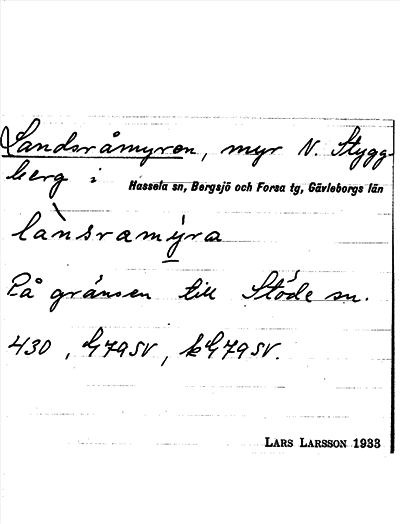 Landsråmyren, myr N. Stygg-
berg i Hassela sn, Bergsjö och Forsa tg, Gävleborgs län
lànsramýra
På gränsen till Stöde sn.
430, G79SV, kG79SV.
LARS LARSSON 1933